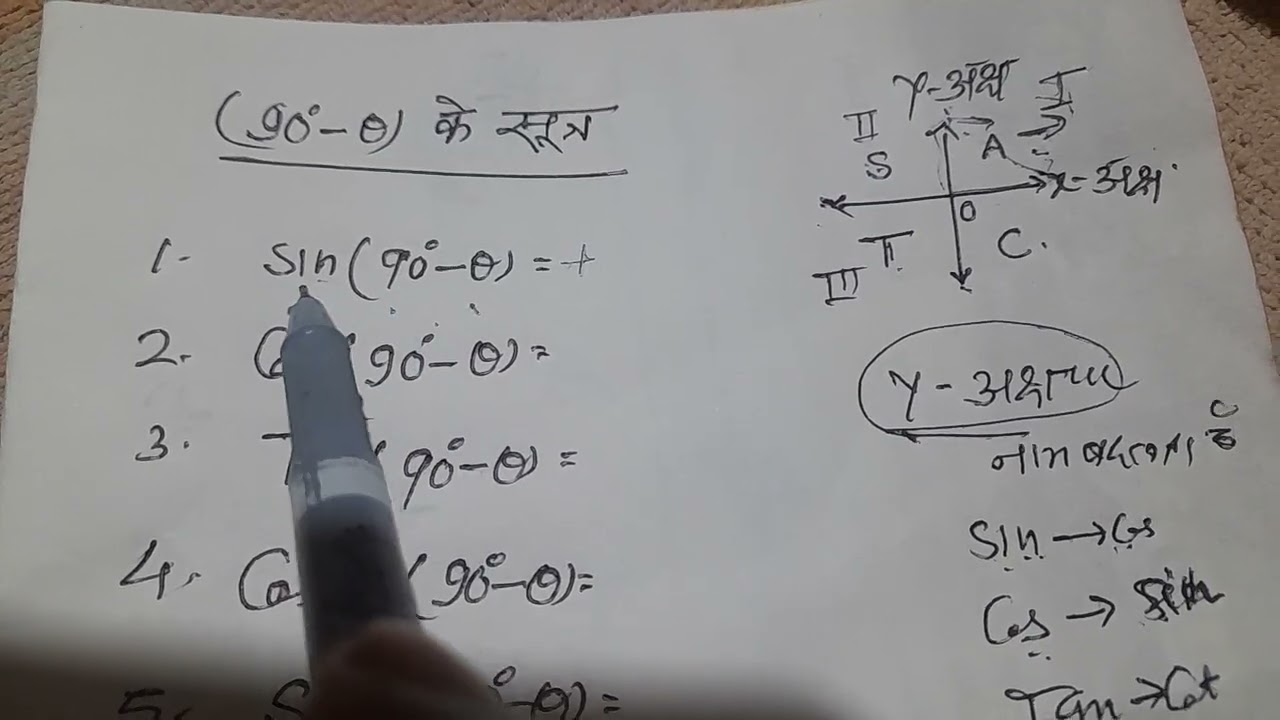 (90°-θ) के सूत्र
1. Sin(90°-θ) = +
2. 90°-θ) =
3. (90°-θ) =
4. (90°-θ)=
5. °-θ)=
Y-अक्ष
I
II
S
A
x-अक्ष
O
T
C.
III
Y-अक्ष पर
नाम बदलता है
Sin → Cos
Cos → Sin
Tan → Cot